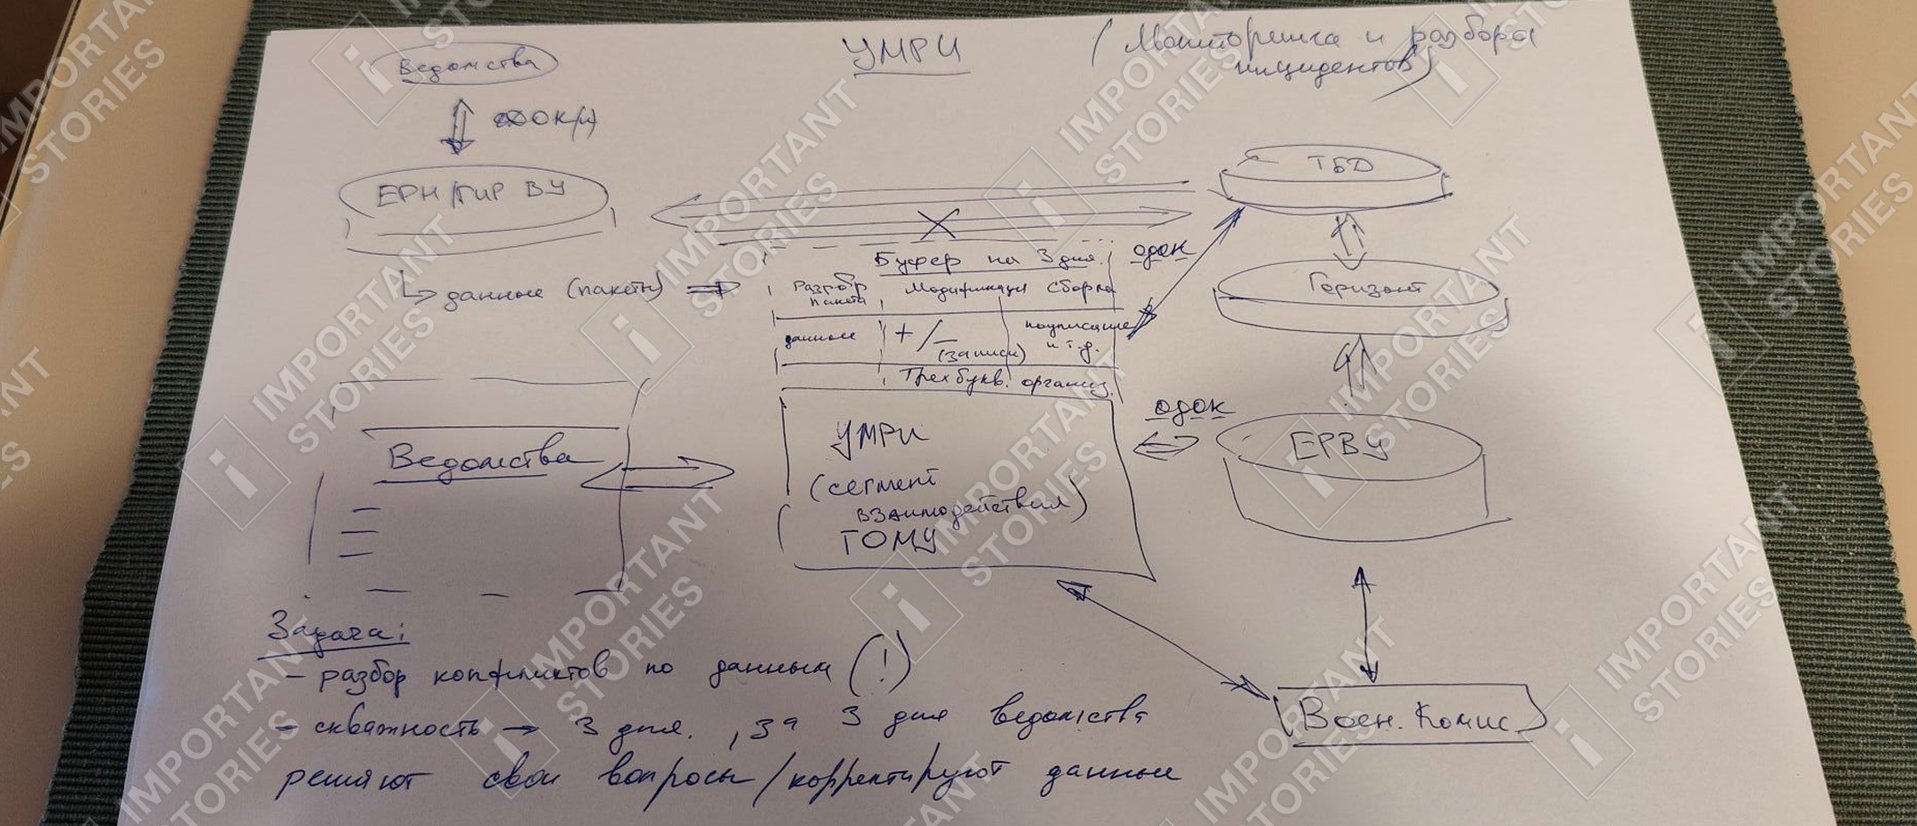 Ведомства
УМРИ
(Мониторинга и разбора
инцидентов)
ОДОК(и)
ЕРН/ГИР ВУ
ТБД
данные (пакеты)
Буфер на 3 дня.
ОДОК
Разбор
пакета
Модификация
сборка
Горизонт
данные
+/-
(записи)
подписание
и т.д.
Трехбукв. организ.
Ведомства
УМРИ
(сегмент
взаимодействия)
ТОМУ
ОДОК
ЕРВУ
Задача:
- разбор конфликтов по данным (!)
- скважность → 3 дня., за 3 дня ведомства
решают свои вопросы/корректируют данные
Воен. Комис
IMPORTANT
STORIES